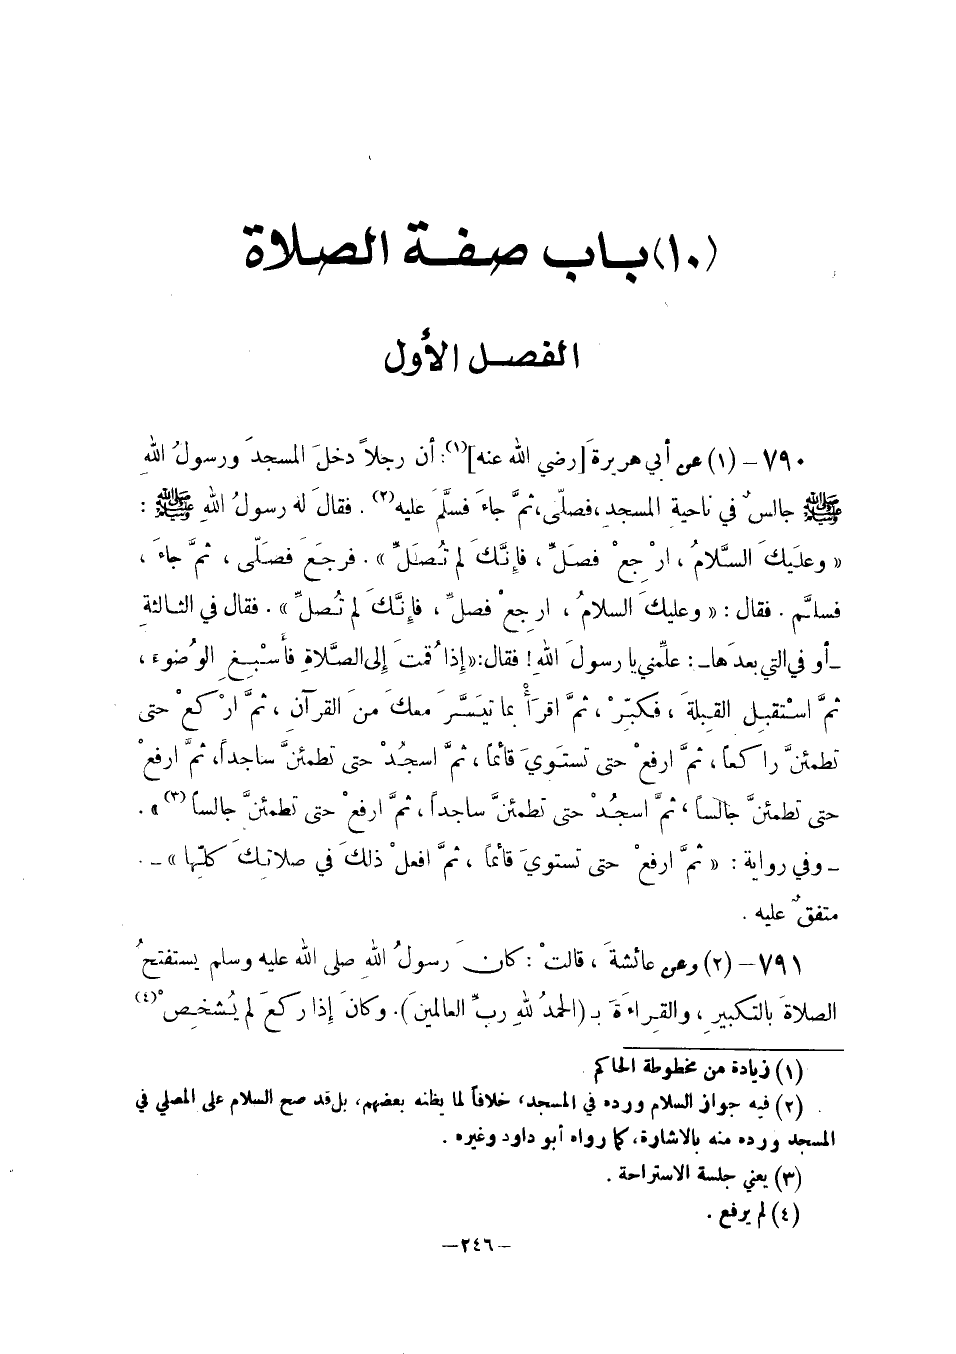 (١٠) باب صفة الصلاة
الفصل الأول
٧٩٠ - (١) عن أبي هريرةَ [رضي الله عنه](١): أن رجلاً دخلَ المسجدَ ورسولُ اللهِ
ﷺ جالسٌ في ناحيةِ المسجدِ، فصلّى، ثمَّ جاءَ فسلَّمَ عليه(٢). فقالَ له رسولُ اللهِ ﷺ :
« وعليكَ السَّلامُ ، ارْجِعْ فصَلِّ ، فإنَّكَ لم تُصَلِّ » . فرجَعَ فصَلّى ، ثمَّ جاءَ ،
فسلَّم . فقال : « وعليكَ السلامُ ، ارجِعْ فصلِّ ، فإنَّكَ لم تُصلِّ » . فقال في الثالثةِ
ـ أو في التي بعدَها ـ : علِّمني يا رسولَ اللهِ ! فقال: « إذا قُمتَ إلى الصَّلاةِ فأَسْبِغِ الوُضوءَ ،
ثمَّ اسْتقبِلِ القِبلةَ ، فكبِّرْ ، ثمَّ اقرَأْ بما تيَسَّرَ معكَ منَ القرآنِ ، ثمَّ ارْكعْ حتى
تطمئنَّ راكعاً ، ثمَّ ارفعْ حتى تستَويَ قائماً ، ثمَّ اسجُدْ حتى تطمئنَّ ساجداً، ثمَّ ارفعْ
حتى تطمئنَّ جالساً ، ثمَّ اسجُدْ حتى تطمئنَّ ساجداً ، ثمَّ ارفعْ حتى تطمئنَّ جالساً (٣) » .
ـ وفي رواية : « ثمَّ ارفعْ حتى تستويَ قائماً ، ثمَّ افعلْ ذلكَ في صلاتِكَ كلِّها » ـ .
متفقٌ عليه .
٧٩١ - (٢) وعن عائشةَ ، قالتْ : كانَ رسولُ اللهِ صلى الله عليه وسلم يستفتحُ
الصلاةَ بالتكبيرِ ، والقِراءَةَ بـ (الحمدُ للهِ ربِّ العالمين). وكانَ إذا ركعَ لم يُشخِصْ(٤)
(١) زيادة من مخطوطة الحاكم .
(٢) فيه جواز السلام ورده في المسجد، خلافاً لما يظنه بعضهم، بل قد صح السلام على المصلي في
المسجد ورده منه بالاشارة، كما رواه أبو داود وغيره .
(٣) يعني جلسة الاستراحة .
(٤) لم يرفع .
— ٢٤٦ —